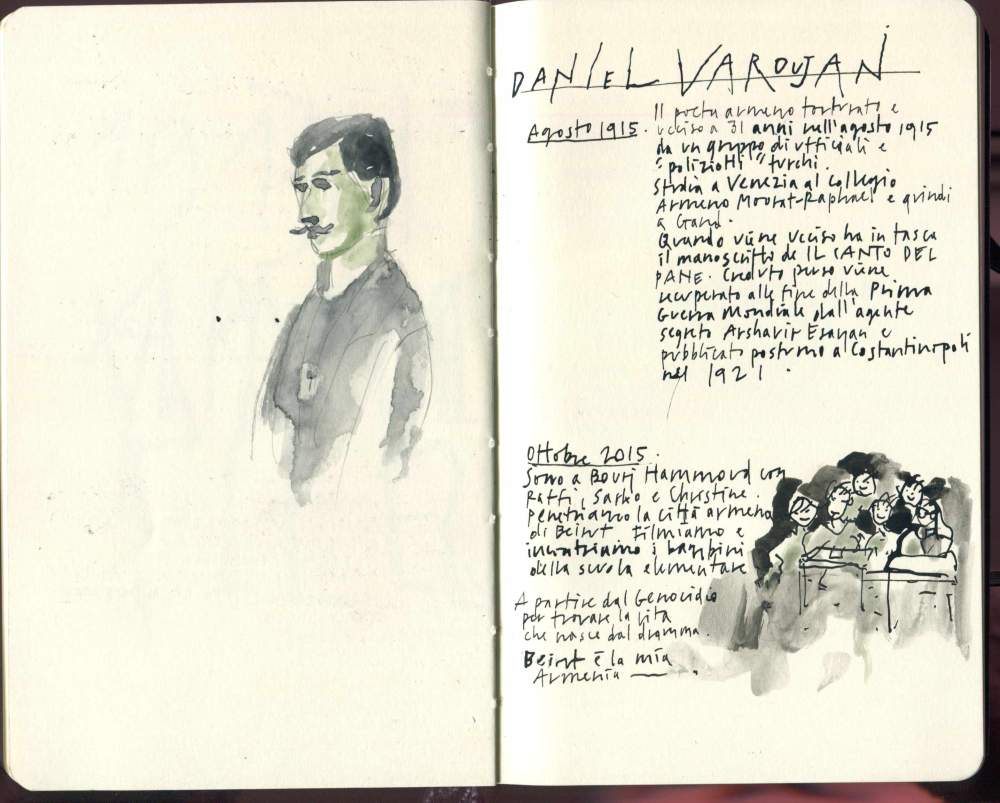 DANIEL VAROUJAN
Agosto 1915.
Il poeta armeno torturato e
ucciso a 31 anni nell'agosto 1915
da un gruppo di ufficiali e
"poliziotti" turchi.
Studia a Venezia al Collegio
Armeno Mourat-Raphael e quindi
a Gand.
Quando viene ucciso ha in tasca
il manoscritto de IL CANTO DEL
PANE. Creduto perso viene
recuperato alla fine della Prima
Guerra Mondiale dall'agente
segreto Arshavir Esayan e
pubblicato postumo a Costantinopoli
nel 1921.
Ottobre 2015.
Sono a Bourj Hammoud con
Raffi, Sarko e Christine.
Penetriamo la città armena
di Beirut filmiamo e
incontriamo i bambini
della scuola elementare
A partire dal Genocidio
per trovare la vita
che nasce dal dramma.
Beirut è la mia
Armenia